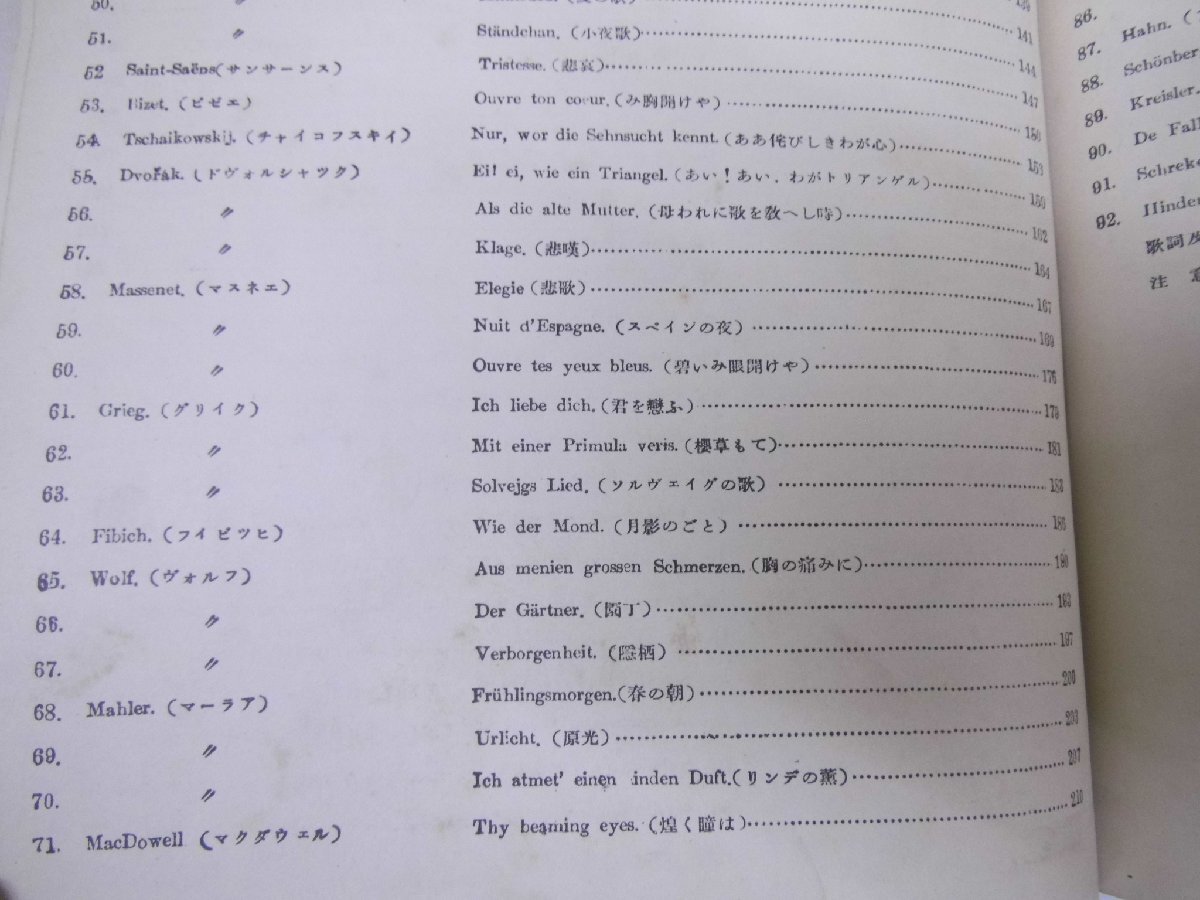 50. 〃
51. 〃 Ständchan. (小夜歌) 141
52 Saint-Saëns(サンサーンス) Tristesse. (悲哀) 144
53. Bizet. (ビゼエ) Ouvre ton coeur. (み胸開けや) 147
54. Tschaikowskij. (チャイコフスキイ) Nur, wor die Sehnsucht kennt. (ああ侘びしきわが心) 150
55. Dvořák. (ドヴォルシャツク) Ei! ei, wie ein Triangel. (あい!あい、わがトリアンゲル) 153
56. 〃 Als die alte Mutter. (母われに歌を教へし時)
57. 〃 Klage. (悲嘆) 162
58. Massenet. (マスネエ) Elegie (悲歌) 164
59. 〃 Nuit d'Espagne. (スペインの夜) 167
60. 〃 Ouvre tes yeux bleus. (碧いみ眼開けや) 169
61. Grieg. (グリイク) Ich liebe dich. (君を戀ふ) 176
62. 〃 Mit einer Primula veris. (櫻草もて) 179
63. 〃 Solvejgs Lied. (ソルヴェイグの歌) 181
64. Fibich. (フイビツヒ) Wie der Mond. (月影のごと)
65. Wolf. (ヴォルフ) Aus menien grossen Schmerzen. (胸の痛みに)
66. 〃 Der Gärtner. (園丁)
67. 〃 Verborgenheit. (隠栖) 197
68. Mahler. (マーラア) Frühlingsmorgen. (春の朝)
69. 〃 Urlicht. (原光) 203
70. 〃 Ich atmet' einen inden Duft. (リンデの薫) 207
71. MacDowell (マクダウェル) Thy beaming eyes. (煌く瞳は) 210
86.
87. Hahn. (
88. Schönber
89. Kreisler.
90. De Fall
91. Schreke
92. Hinde
歌詞
注 意